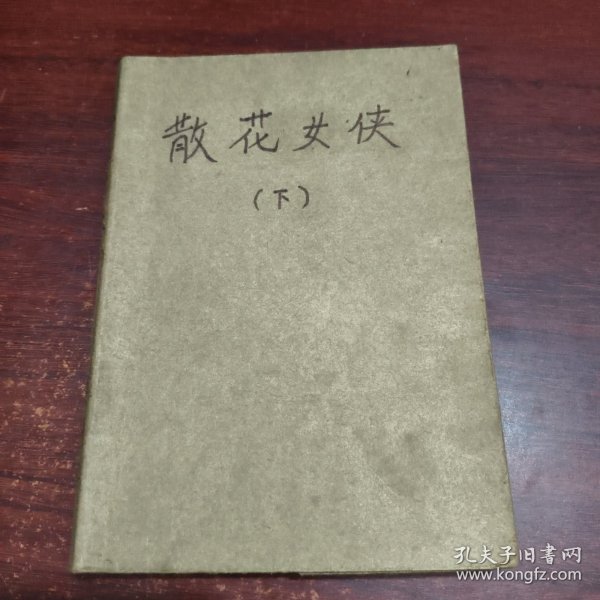 散花女侠
（下）
孔夫子旧书网
www.kongfz.com